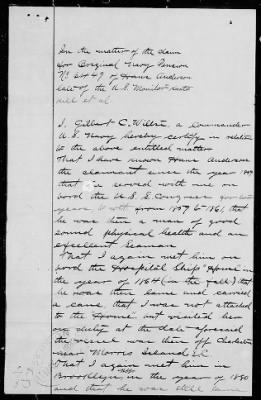 In the matter of the claim
for Original Navy Pension
No of Hans Anderson
late of the U.S. Monitor
et al
I, Gilbert C. Wiltse, a Commander
U.S. Navy hereby certify in relation
to the above entitled matter
That I have known Hans Anderson
the claimant since the year
that he served with me on
board the U.S.S. Congress for
years from 1857 to 1861 that
he was then a man of good
sound physical health and an
excellent Seaman
That I again met him on
bord the Hospital Ship "Home" in
the year of 1864 (in the fall) that
he was then lame and carried
a cane, that I was not attached
to the Home but visited her
on duty at the date aforesaid
the vessel was then off Charleston
near Morris Island S.C.
That I again met him in
Brooklyn in the year of 1880
and that he was still lame